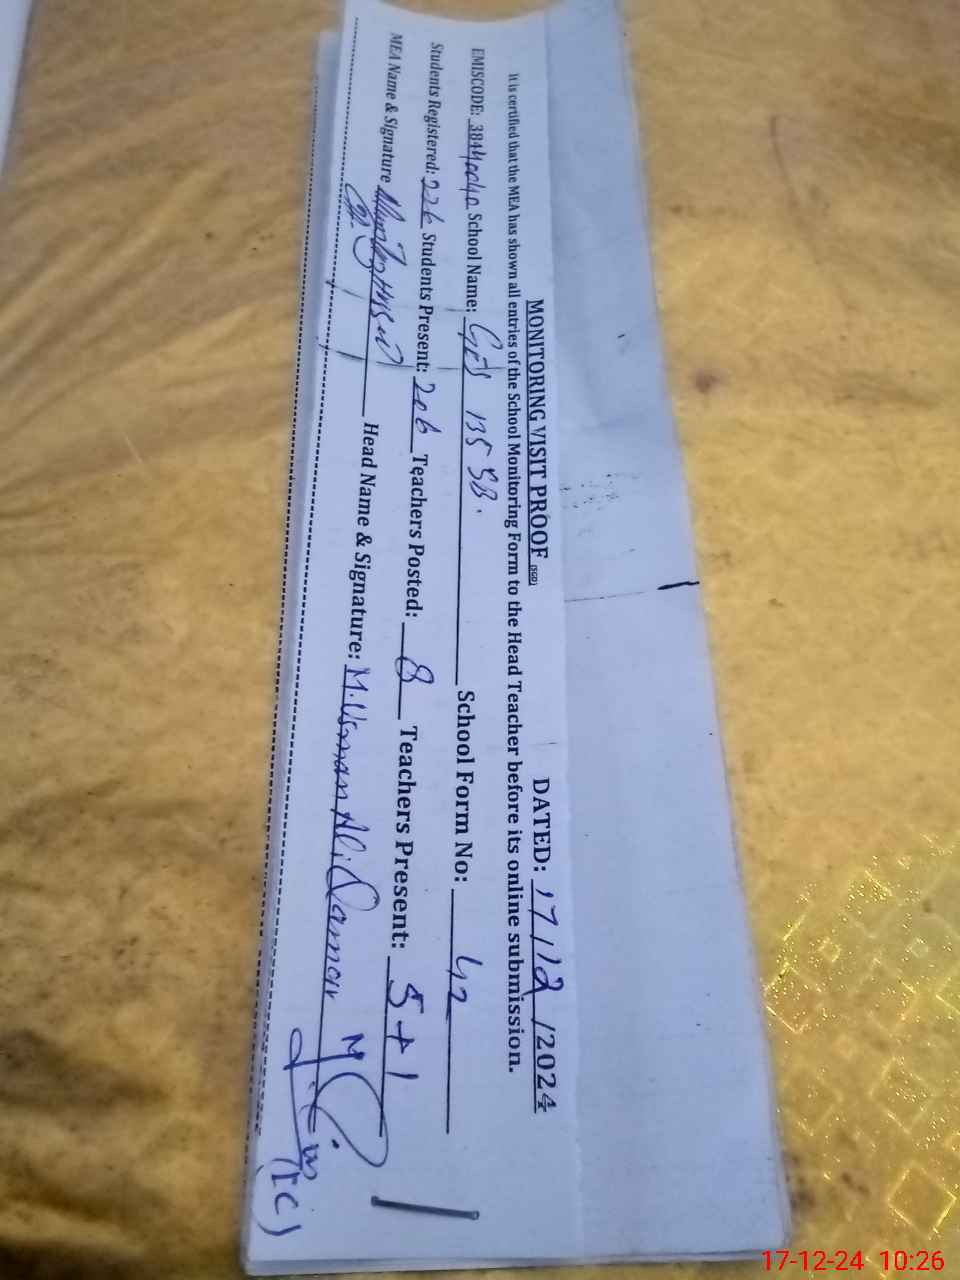 MONITORING VISIT PROOF (SGD) DATED: 17/12/2024
It is certified that the MEA has shown all entries of the School Monitoring Form to the Head Teacher before its online submission.
EMISCODE: 38440040 School Name: GES 135 SB. School Form No: 42
Students Registered: 226 Students Present: 206 Teachers Posted: 8 Teachers Present: 5+1
MEA Name & Signature Head Name & Signature: M. Usman Ali
17-12-24 10:26